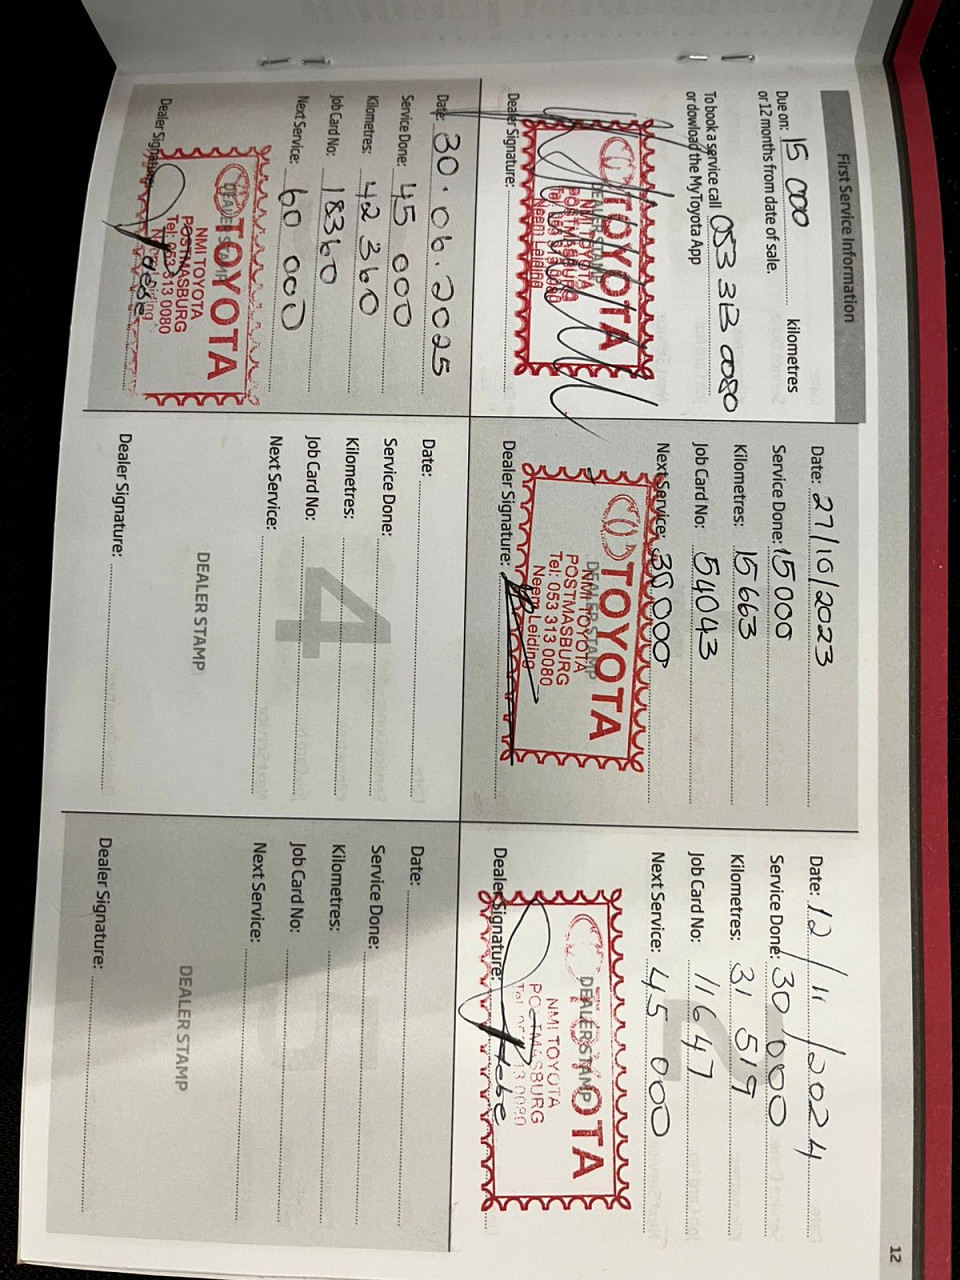 12
First Service Information
Due on: 15 000 kilometres
or 12 months from date of sale.
To book a service call 053 313 0080
or dowload the My Toyota App
TOYOTA
DEALER STAMP
NMI TOYOTA
POSTMASBURG
Tel: 053 313 0080
Neem Leiding
Dealer Signature:
Date: 27/10/2023
Service Done: 15 000
Kilometres: 15663
Job Card No: 54043
Next Service: 30 000
TOYOTA
DEALER STAMP
NMI TOYOTA
POSTMASBURG
Tel: 053 313 0080
Neem Leiding
Dealer Signature:
2
Date: 12/11/2024
Service Done: 30 000
Kilometres: 31 519
Job Card No: 11647
Next Service: 45 000
TOYOTA
DEALER STAMP
NMI TOYOTA
POSTMASBURG
Tel: 053 313 0080
Dealer Signature:
Date: 30.06.2025
Service Done: 45 000
Kilometres: 42 360
Job Card No: 18360
Next Service: 60 000
TOYOTA
DEALER STAMP
NMI TOYOTA
POSTMASBURG
Tel: 053 313 0080
Neem Leiding
Dealer Signature:
4
Date:
Service Done:
Kilometres:
Job Card No:
Next Service:
DEALER STAMP
Dealer Signature:
5
Date:
Service Done:
Kilometres:
Job Card No:
Next Service:
DEALER STAMP
Dealer Signature: